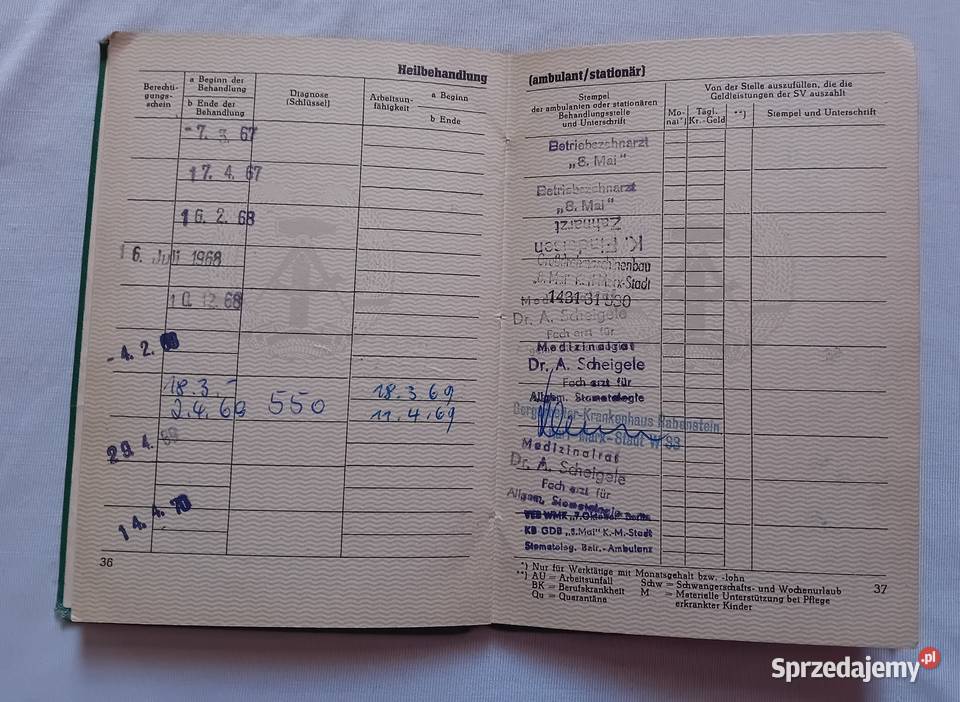 Heilbehandlung
Berechti-
gungs-
schein
a Beginn der
Behandlung
b Ende der
Behandlung
Diagnose
(Schlüssel)
Arbeitsun-
fähigkeit
a Beginn
b Ende
-7. 3. 67
17. 4. 67
16. 2. 68
16. Juli 1968
10. 12. 68
-4. 2.
18.3.-
2.4.69
550
18.3 69
11.4.69
29. 4. 69
14. 4. 70
36
(ambulant/stationär)
Stempel
der ambulanten oder stationären
Behandlungsstelle
und Unterschrift
Von der Stelle auszufüllen, die die
Geldleistungen der SV auszahlt
Mo-
nat*)
Tägl.
Kr.-Geld
**)
Stempel und Unterschrift
Betriebszahnarzt
„8. Mai"
Betriebszahnarzt
„8. Mai"
Zahnarzt
1431 31 030
Dr. A. Scheigele
Facharzt für
Medizinalrat
Dr. A. Scheigele
Facharzt für
Allgem. Stomatologie
Krankenhaus Rabenstein
Karl-Marx-Stadt W 93
Medizinalrat
Dr. A. Scheigele
Facharzt für
Allgem. Stomatologie
VEB WMK „7. Oktober" Berlin
KB GDB „8. Mai" K.-M.-Stadt
Stomatolog. Betr.-Ambulanz
*) Nur für Werktätige mit Monatsgehalt bzw. -lohn
**) AU = Arbeitsunfall
BK = Berufskrankheit
Qu = Quarantäne
Schw = Schwangerschafts- und Wochenurlaub
M = Materielle Unterstützung bei Pflege
erkrankter Kinder
37
Sprzedajemy.pl